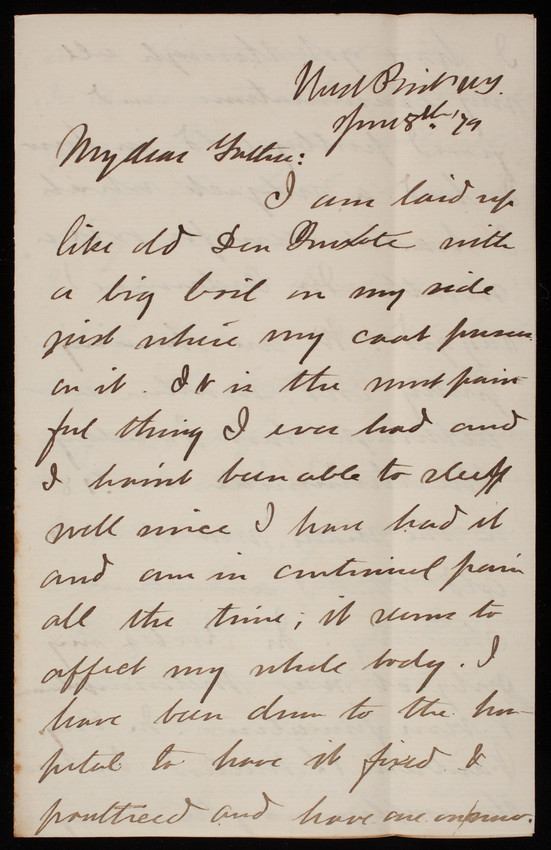 West Point N.Y.
June 8th '79
My dear Father:
I am laid up
like old Den with
a big boil on my side
just where my coat presses
on it. It is the most pain
ful thing I ever had and
I haint been able to sleep
well since I have had it
and am in continual pain
all the time; it seems to
affect my whole body. I
have been down to the hos-
pital to have it fixed &
poulticed and have one on now.